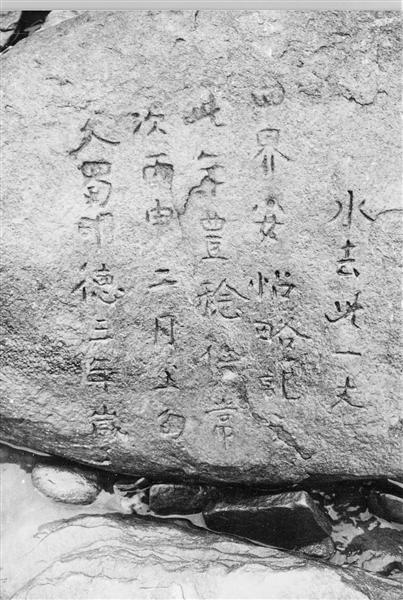 大蜀明德三年歲
次丙申二月上旬
此年豐稔倍常
四界安怡略記之
水去此一丈